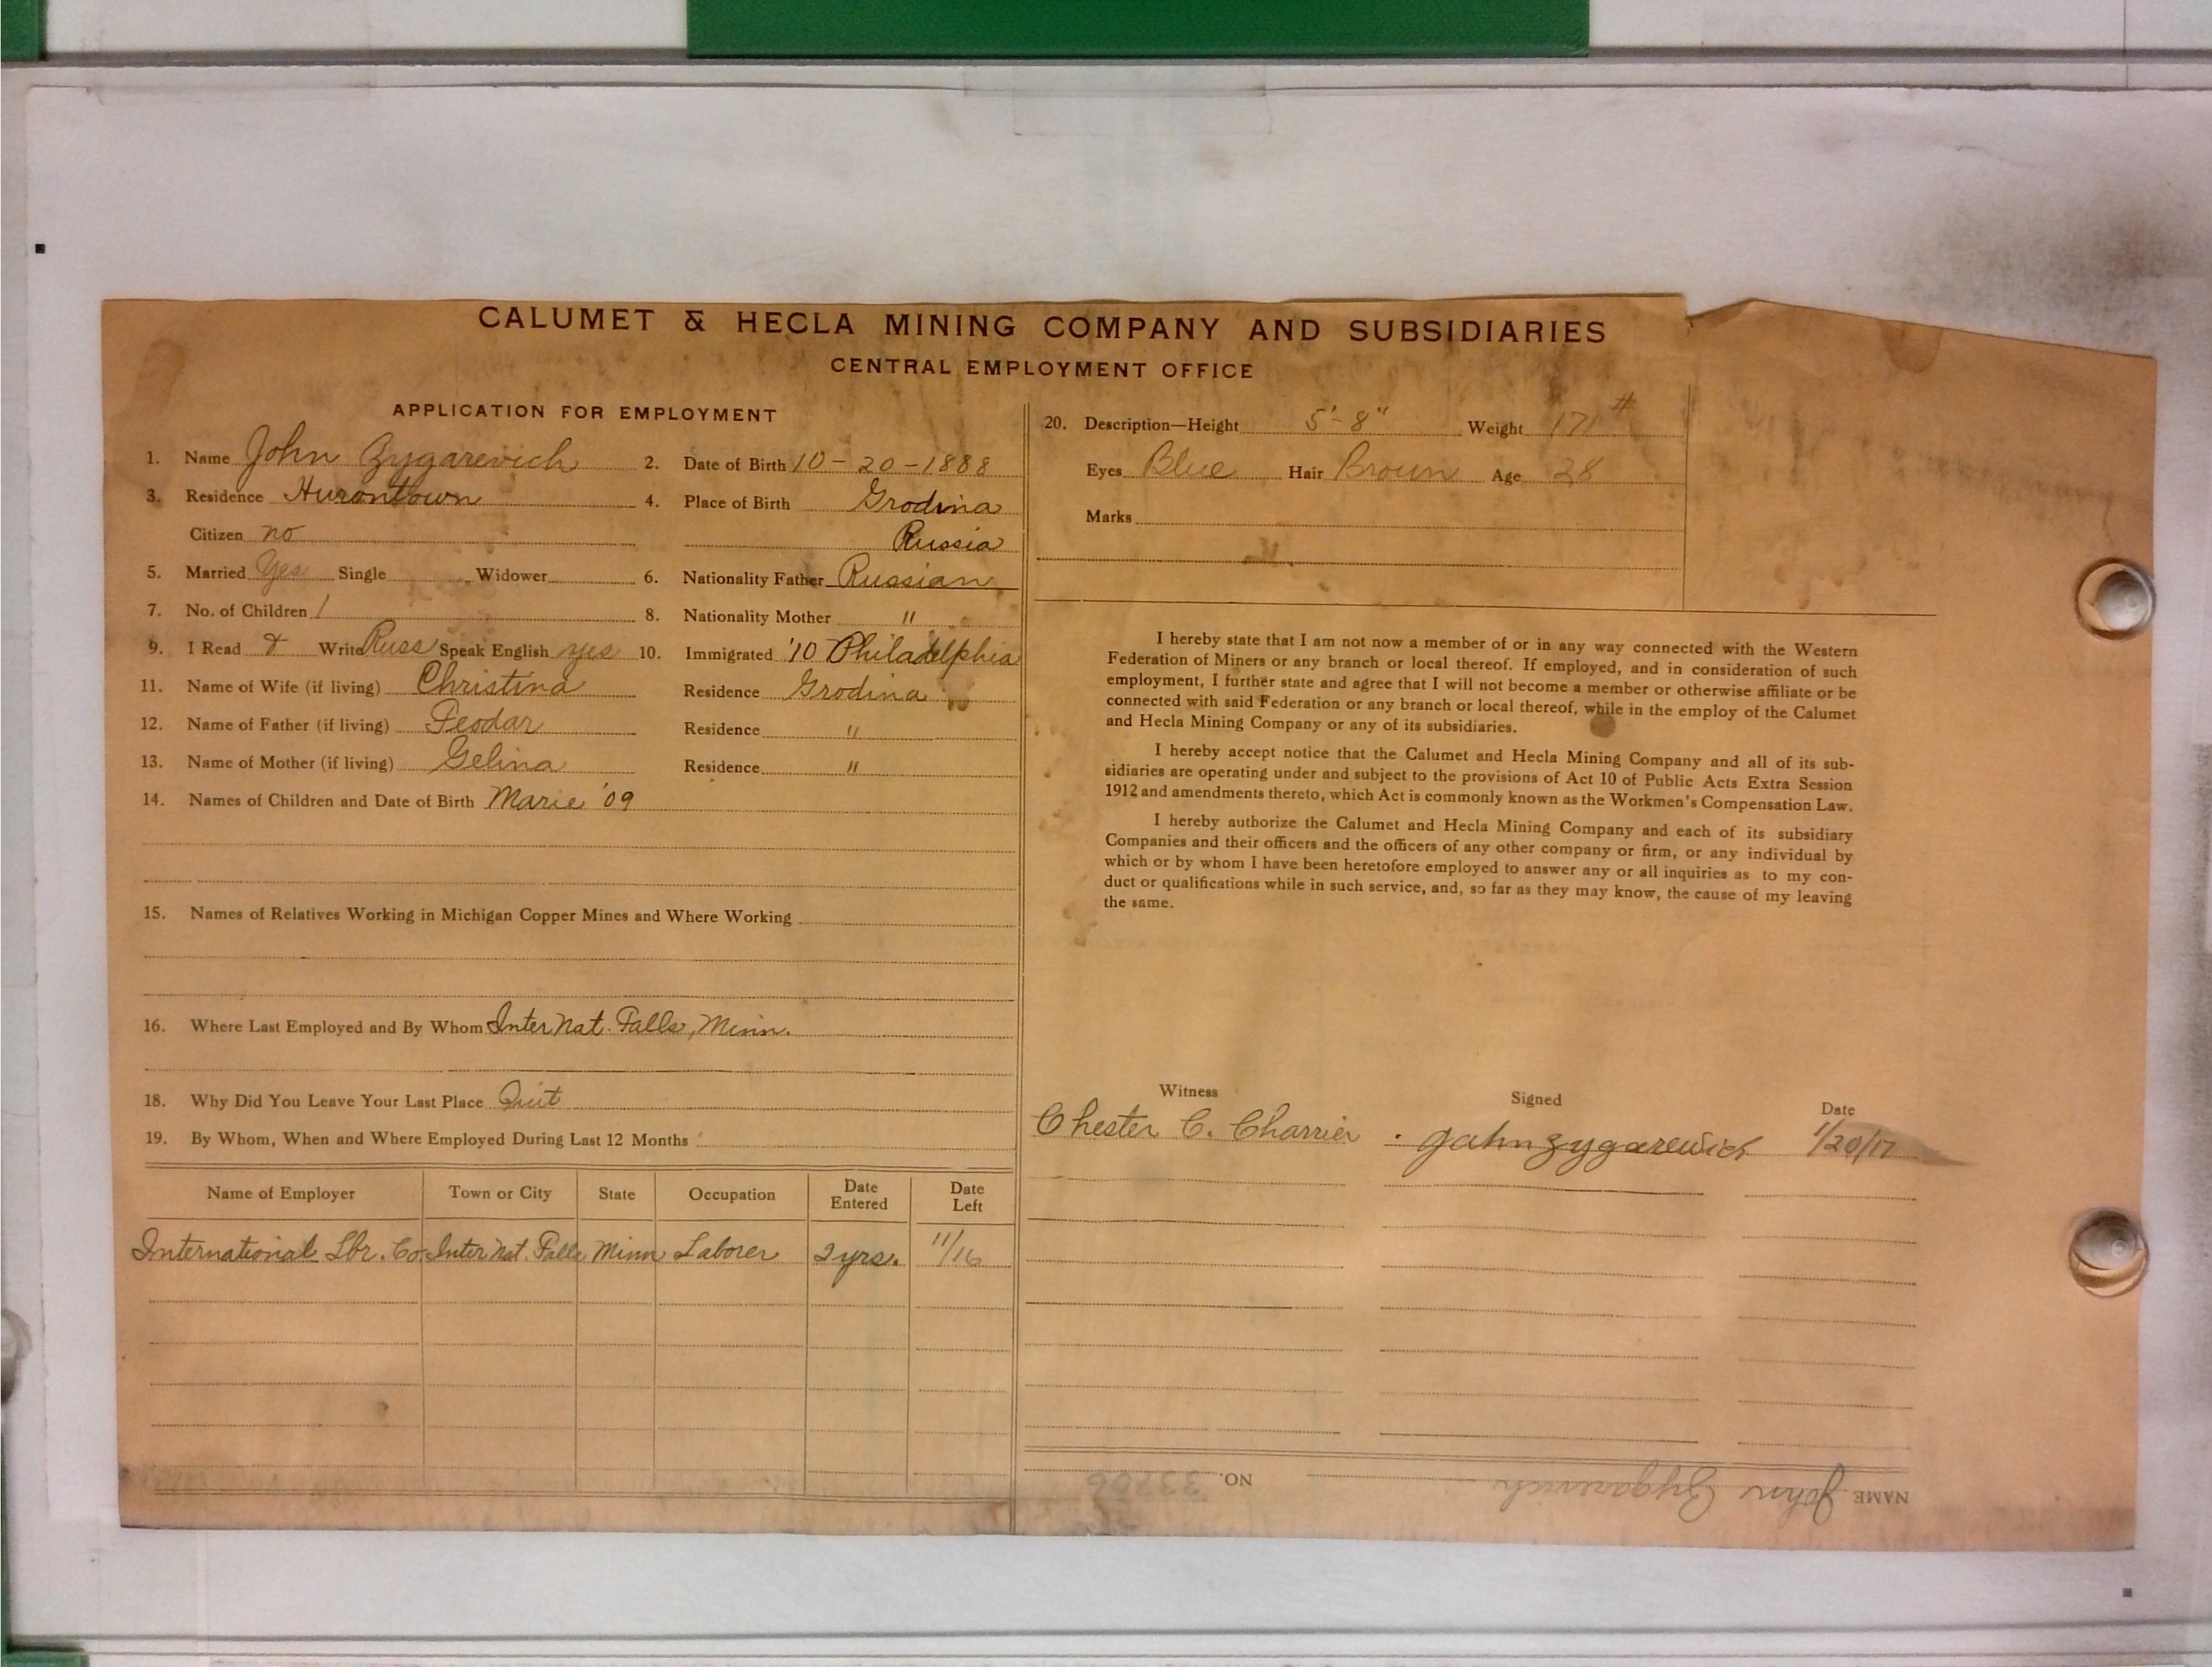 CALUMET & HECLA MINING COMPANY AND SUBSIDIARIES
CENTRAL EMPLOYMENT OFFICE
APPLICATION FOR EMPLOYMENT
1. Name John Zygarevich 2. Date of Birth 10-20-1888
3. Residence Hurontown 4. Place of Birth Grodina
Citizen no Russia
5. Married Yes Single Widower 6. Nationality Father Russian
7. No. of Children 1 8. Nationality Mother "
9. I Read & Write Russ Speak English yes 10. Immigrated '10 Philadelphia
11. Name of Wife (if living) Christina Residence Grodina
12. Name of Father (if living) Feodar Residence "
13. Name of Mother (if living) Gelina Residence "
14. Names of Children and Date of Birth Marie '09
15. Names of Relatives Working in Michigan Copper Mines and Where Working
16. Where Last Employed and By Whom Inter Nat. Falls, Minn.
18. Why Did You Leave Your Last Place Quit
19. By Whom, When and Where Employed During Last 12 Months
Name of Employer Town or City State Occupation Date Entered Date Left
International Lbr. Co. Inter Nat. Falls Minn Laborer 2 yrs. 11/16
20. Description—Height 5'-8" Weight 171#
Eyes Blue Hair Brown Age 28
Marks
I hereby state that I am not now a member of or in any way connected with the Western
Federation of Miners or any branch or local thereof. If employed, and in consideration of such
employment, I further state and agree that I will not become a member or otherwise affiliate or be
connected with said Federation or any branch or local thereof, while in the employ of the Calumet
and Hecla Mining Company or any of its subsidiaries.
I hereby accept notice that the Calumet and Hecla Mining Company and all of its sub-
sidiaries are operating under and subject to the provisions of Act 10 of Public Acts Extra Session
1912 and amendments thereto, which Act is commonly known as the Workmen's Compensation Law.
I hereby authorize the Calumet and Hecla Mining Company and each of its subsidiary
Companies and their officers and the officers of any other company or firm, or any individual by
which or by whom I have been heretofore employed to answer any or all inquiries as to my con-
duct or qualifications while in such service, and, so far as they may know, the cause of my leaving
the same.
Witness Signed Date
Chester C. Charrier John Zygarewich 1/20/17
NAME John Zygarevich NO. 33706